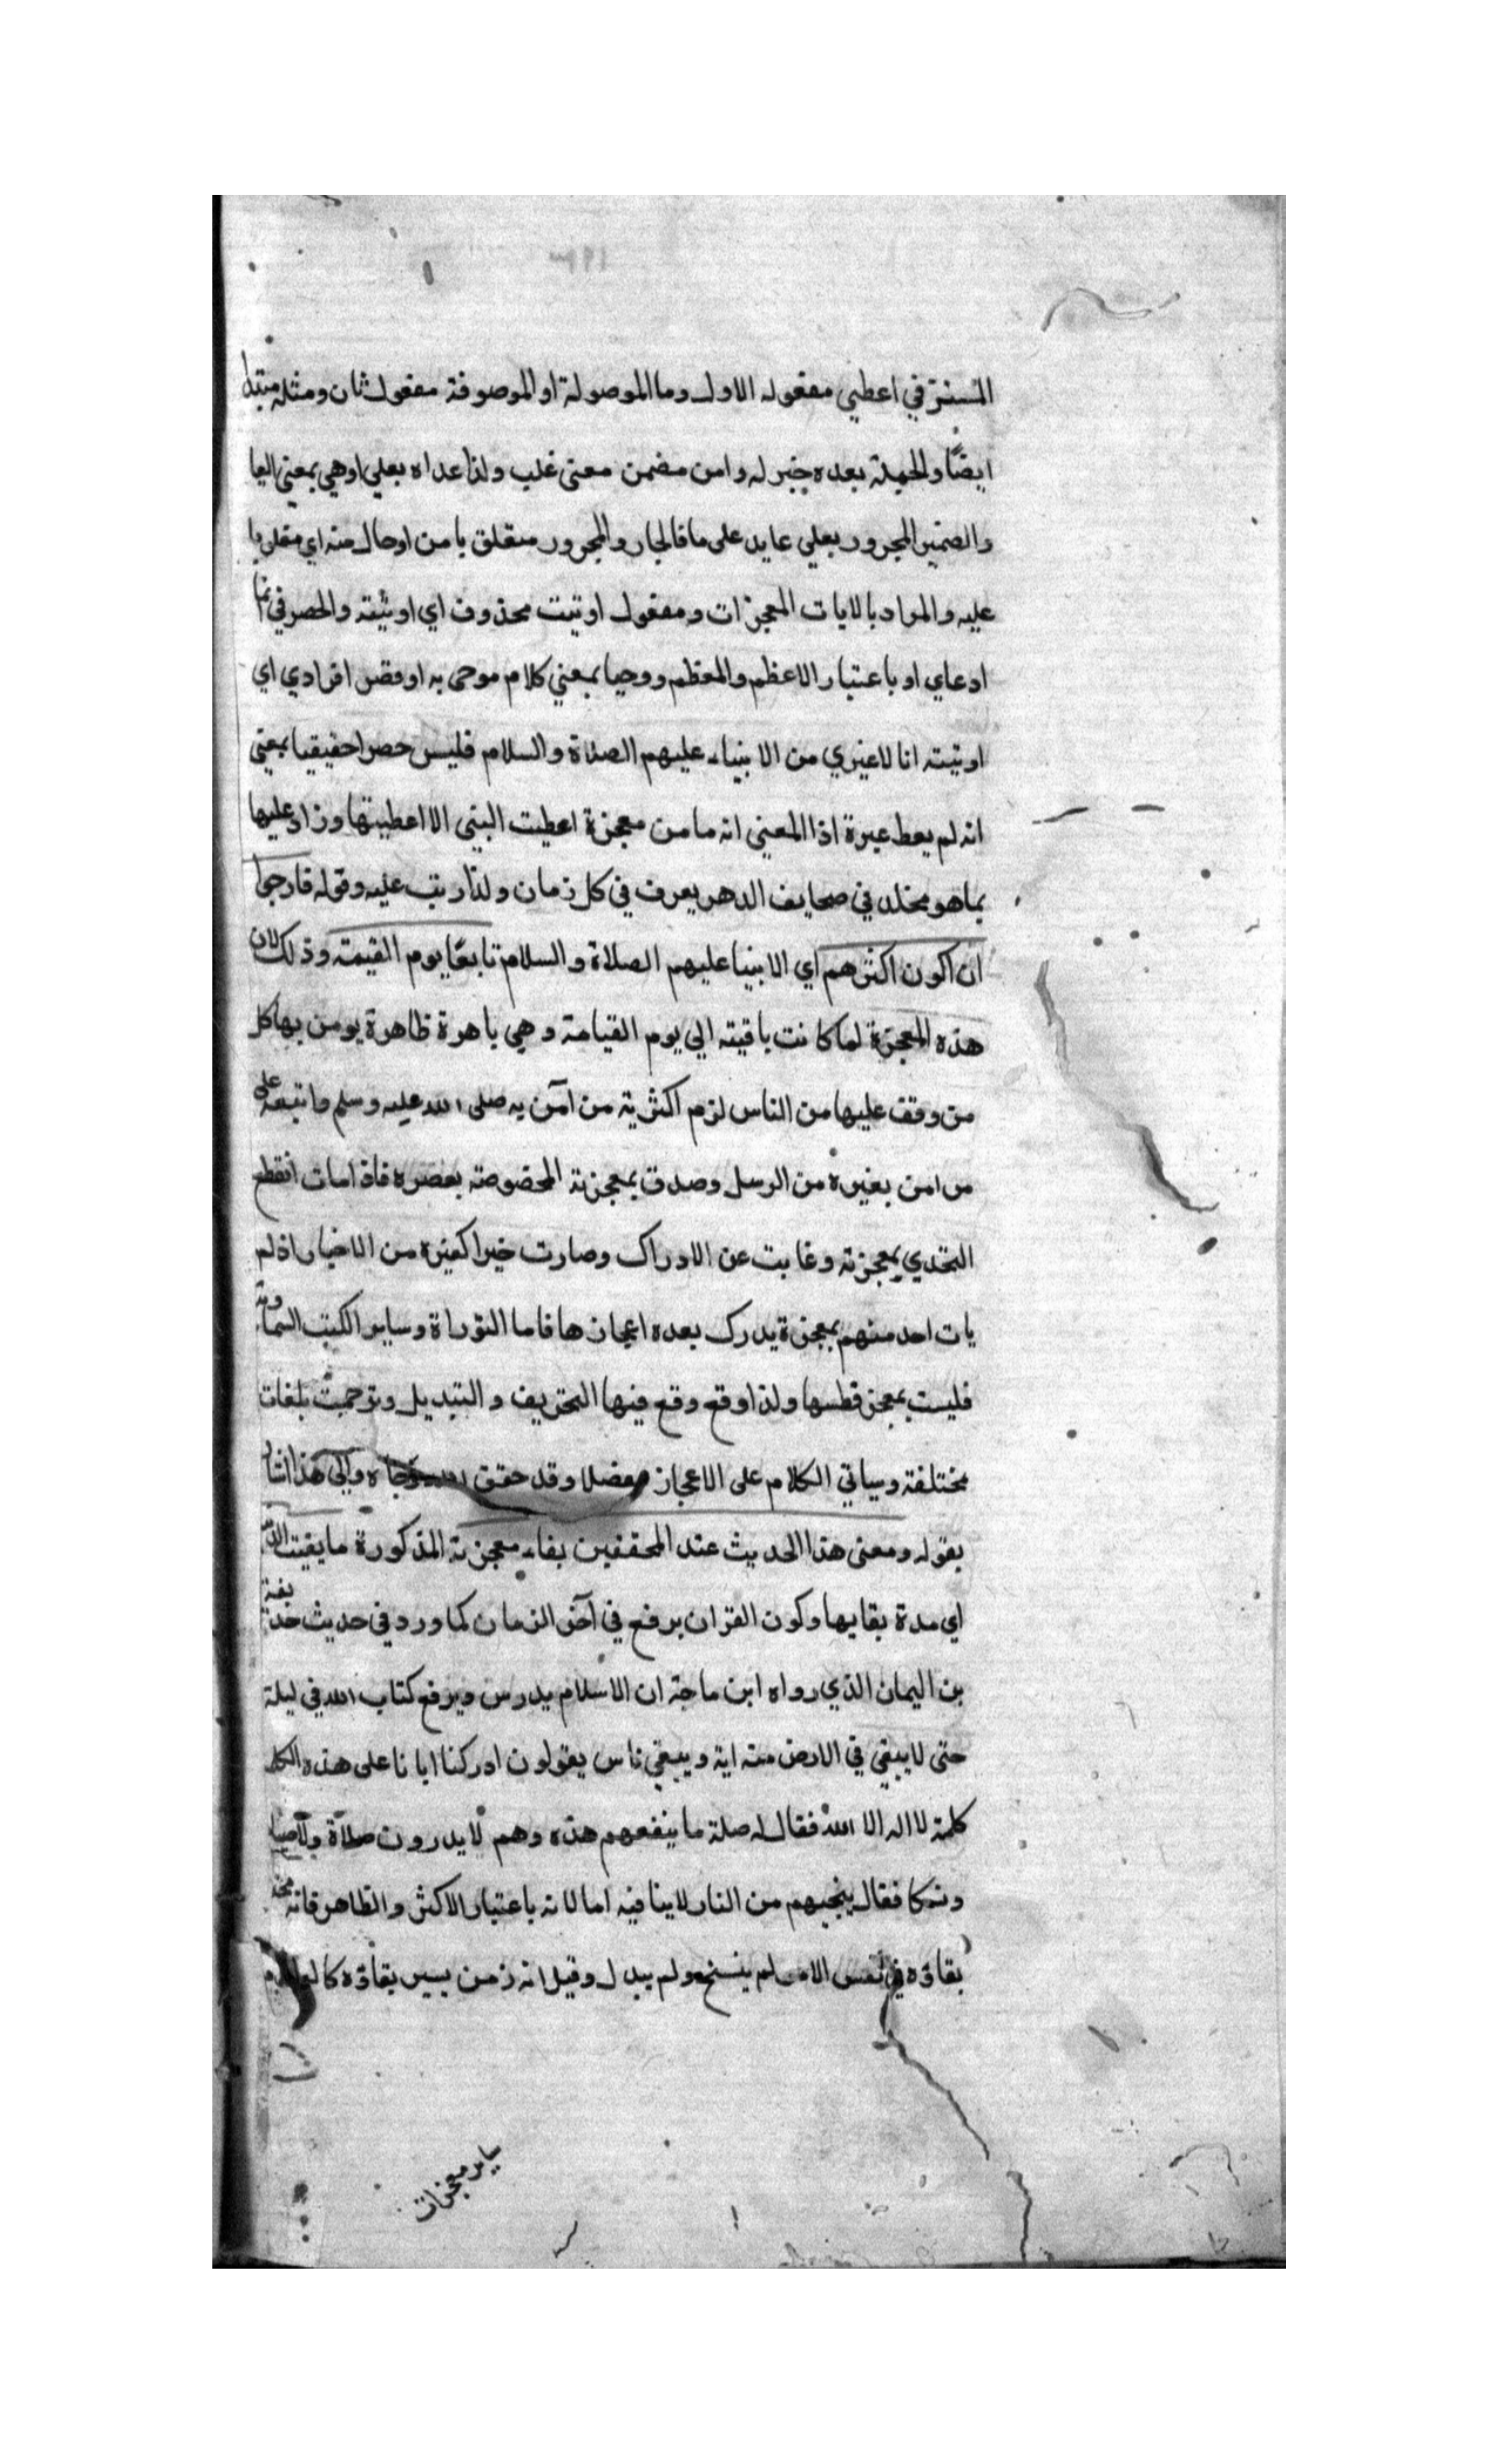 المستتر في اعطي مفعوله الاول وما الموصولة او الموصوفة مفعول ثان ومثله مبتدا
ايضًا والجملة بعده خبر له وامن مضمن معنى غلب ولذا عداه بعلي اوهي بمعنى البا
والضمير المجرور بعلي عايد على ما فالجار والمجرور متعلق بامن اوحال منه اي مغلوبا
عليه والمراد بالايات المعجزات ومفعول اوتيت محذوف اي اوتيته والحصر في انما
ادعاي او باعتبار الاعظم والمعظم ووحيا بمعني كلام موحى به او قصر افرادي اي
اوتيته انا لاغيري من الانبياء عليهم الصلاة والسلام فليس حصرا حقيقيا بمعنى
انه لم يعط غيرة اذا المعني انه ما من معجزة اعطيت النبى الا اعطيتها وزاد عليها
بما هو مخلد في صحايف الدهر يعرف في كل زمان ولذا رتب عليه وقوله فارجوا
ان اكون اكثرهم اي الانبيا عليهم الصلاة والسلام تابعًا يوم القيمة وذلك لان
هذه المعجزة لما كانت باقيته الي يوم القيامة وهي باهرة ظاهرة يومن بها كل
من وقف عليها من الناس لزم اكثرية من آمن به صلى الله عليه وسلم واتبعه على
من امن بغيره من الرسل وصدق بمعجزته المخصوصة بعصره فاذا مات انقطع
التحدي بمعجزته وغابت عن الادراك وصارت خبرا كغيره من الاخبار اذ لم
يات احد منهم بمعجزة يدرك بعده اعجازها فاما التوراة وساير الكتب السماوية
فليست بمعجز قطسها ولذا وقع وقع فيها التحريف والتبديل وترجمت بلغات
مختلفة وسياتي الكلام على الاعجاز مفصلا وقد حقق الله رجاه والى هذا اشار
بقوله ومعنى هذا الحديث عند المحققين بقاء معجزته المذكورة ما بقيت الدنيا
اي مدة بقايها وكون القران يرفع في آخر الزمان كما ورد في حديث حذيفة
بن اليمان الذي رواه ابن ماجة ان الاسلام يدرس ويرفع كتاب الله في ليلة
حتى لا يبقي في الارض منه اية ويبقي ناس يقولون ادركنا ابانا على هذه الكل
كلمة لا اله الا الله فقال له صلة ما ينفعهم هذه وهم لا يدرون صلاة ولا صيا
ونسكا فقال ينجيهم من النار لاينافيه اما لانه باعتبار الاكثر والظاهر فانه
بقاؤه في نفس الامر لم ينسخ ولم يبدل وقيل انه زمن يسير بقاؤه كالعدم
ساير معجزات